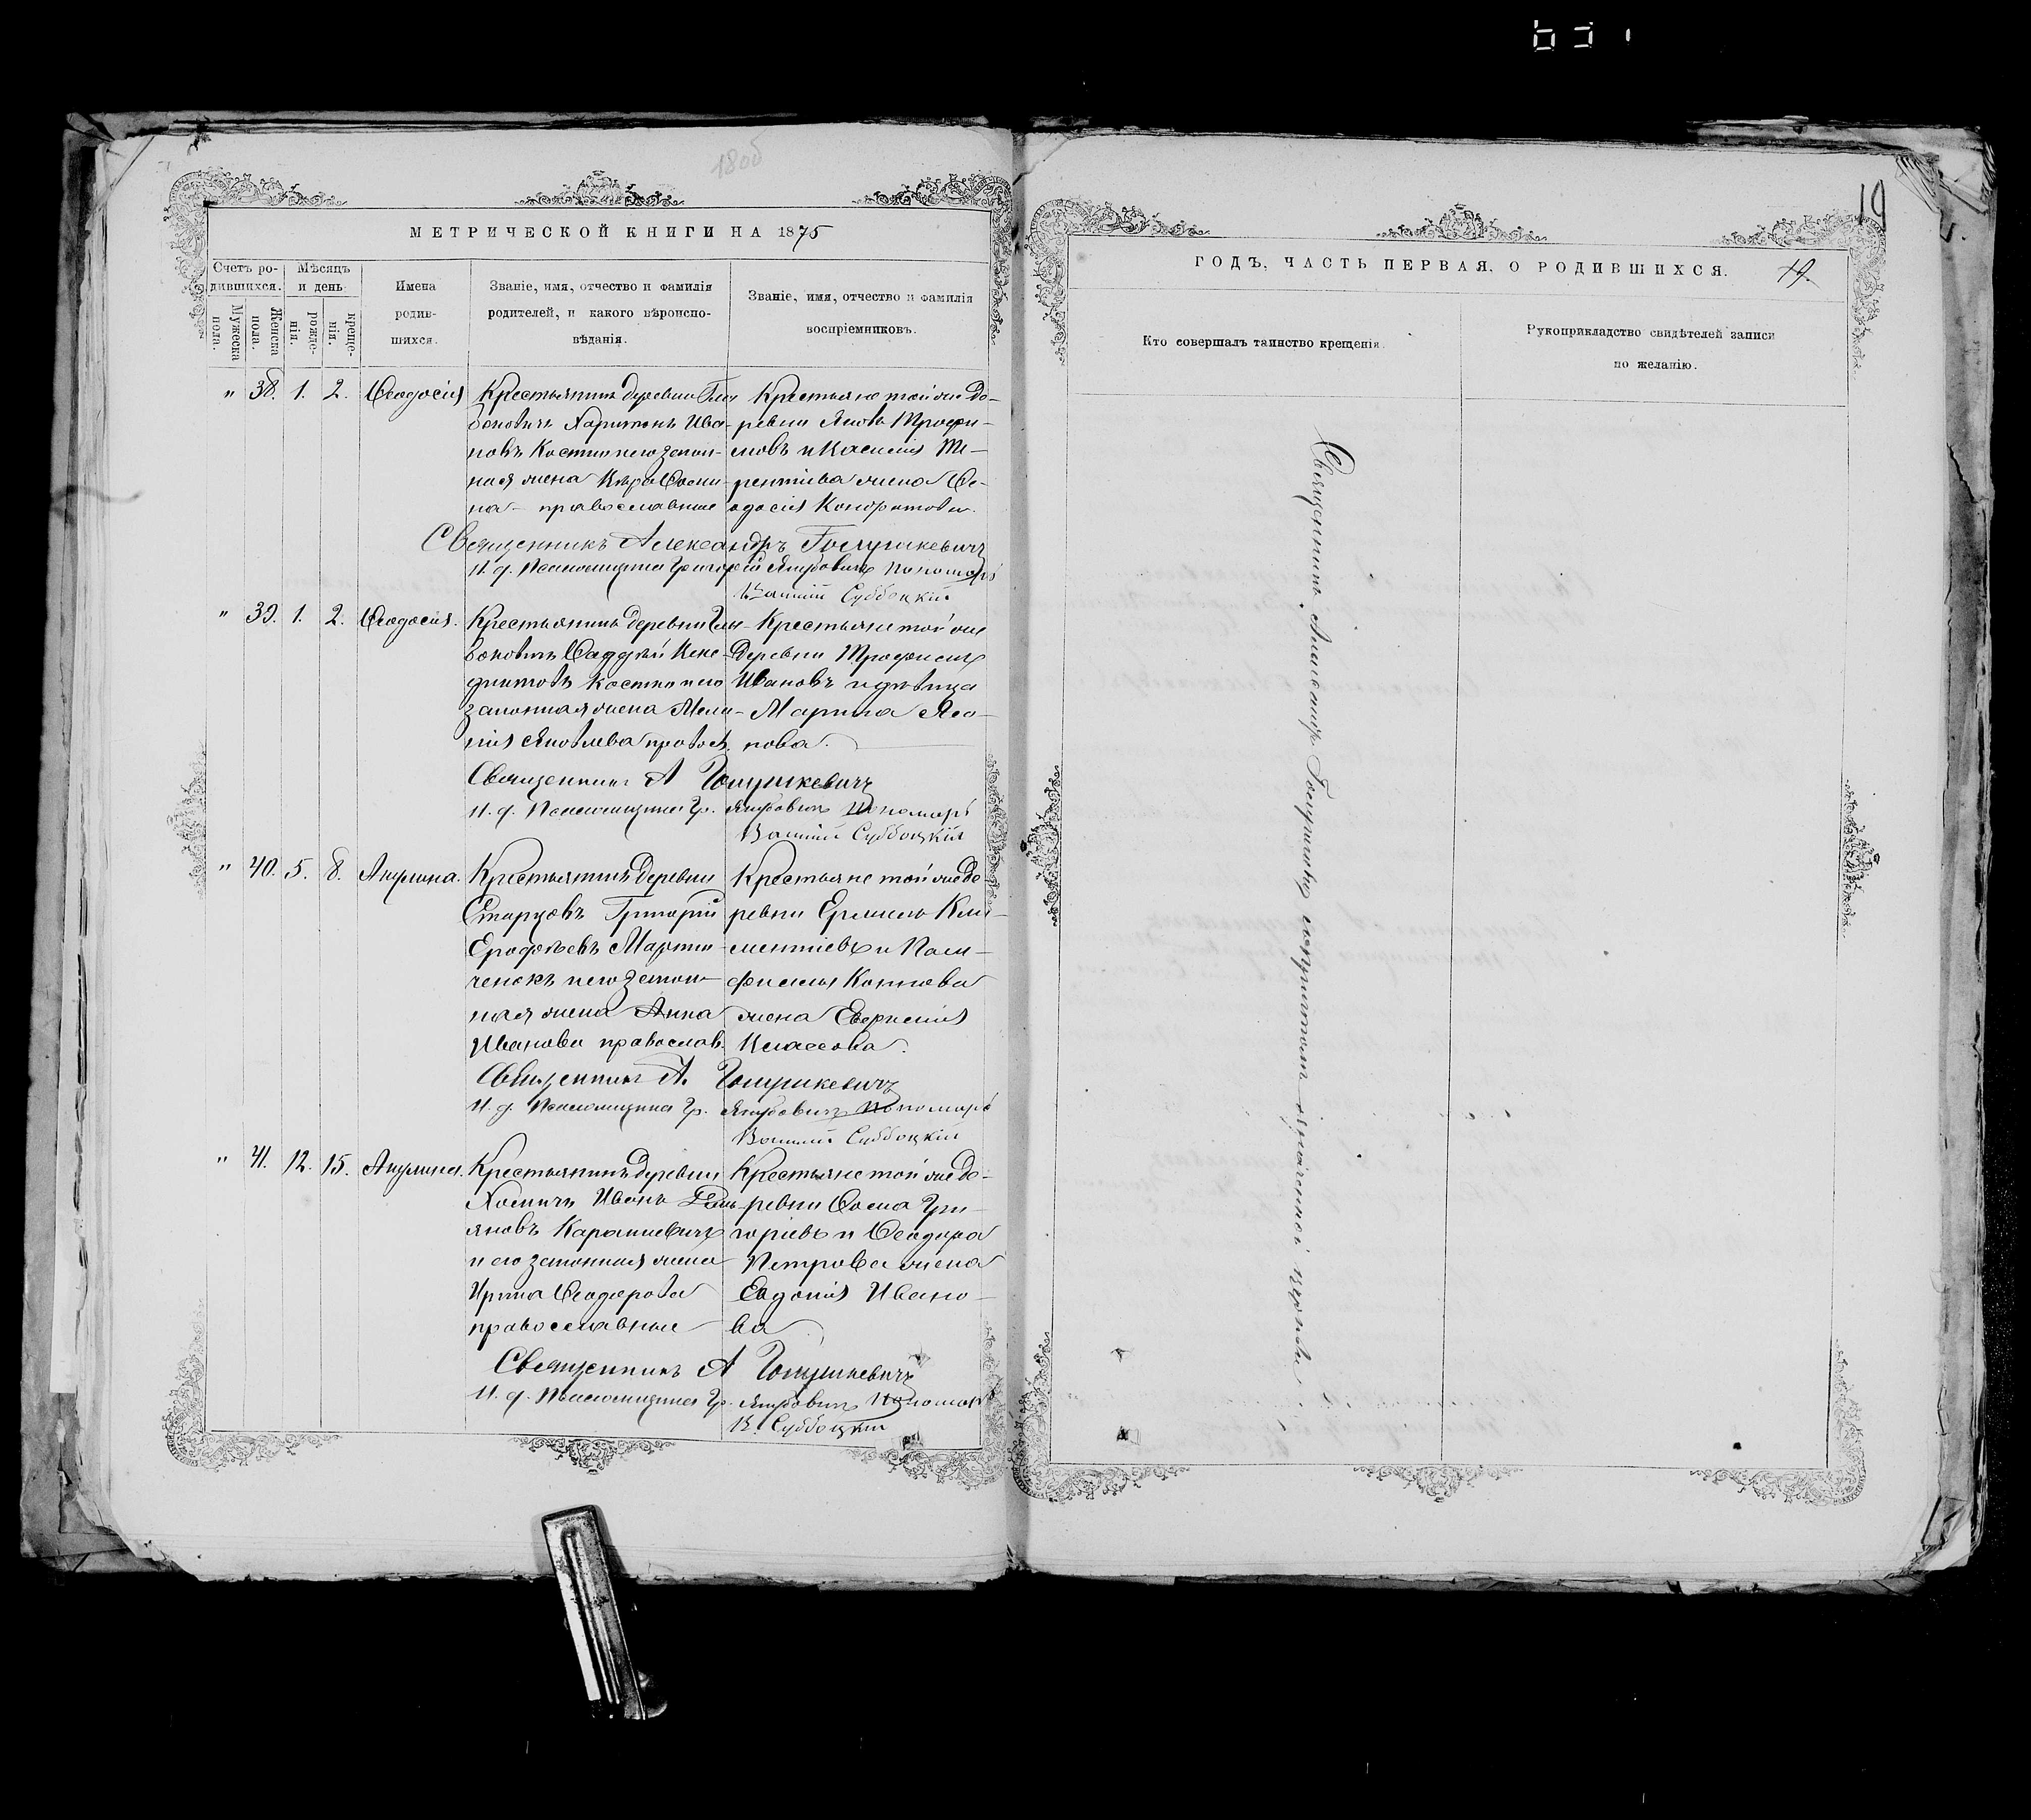 180б
МЕТРИЧЕСКОЙ КНИГИ НА 1875
Счетъ ро-
дившихся.
Мѣсяцъ
и день
Мужеска
пола.
Женска
пола.
рожде-
нія.
креще-
нія.
Имена
родив-
шихся.
Званіе, имя, отчество и фамилія
родителей, и какого вѣроиспо-
вѣданія.
Званіе, имя, отчество и фамилія
воспріемниковъ.
" 38. 1. 2. Ѳеодосія
Крестьянинъ деревни
Харитонъ Ива-
новъ Костин и его закон-
ная жена Вѣра Ѳоми-
на - православные
Крестьяне той же де-
ревни Яковъ Трофи-
мовъ и Касьянъ Те-
рентіева жена Ѳе-
одосія Кондратова.
Священникъ Александръ Голушкевичъ
И. д. Псаломщика Григорій Якубовичъ Пономарь
Василій Суббоцкій
" 39. 1. 2. Ѳеодосія.
Крестьянинъ деревни
Ѳаддей
Костин и его
законная жена Мела-
нія Яковлева правосл.
Крестьяне той же
деревни Трофимъ
Ивановъ и дѣвица
Марина Яко-
нова.
Священникъ А Голушкевичъ
И. д. Псаломщика Гр. Якубовичъ Пономарь
Василій Суббоцкій
" 40. 5. 8. Акулина.
Крестьянинъ деревни
Старцовъ Григорій
Ерофѣевъ Марти-
ченокъ и его закон-
ная жена Анна
Иванова православ.
Крестьяне той же де-
ревни Ермило Кли-
ментіевъ и Пам-
филия Кононова
жена Евгенія
Власова.
Священникъ А. Голушкевичъ
И. д. Псаломщика Гр. Якубовичъ Пономарь
Василій Суббоцкій
" 41. 12. 15. Акулина.
Крестьянинъ деревни
Хомичи Иванъ Емль-
яновъ
и его законная жена
Ирина Ѳеодорова
православные
Крестьяне той же де-
ревни Ѳома Гри-
горіевъ и Ѳеодора
Петрова жена
Евдокія Ивано-
ва
Священникъ А Голушкевичъ
И. д. Псаломщика Гр. Якубовичъ Пономарь
В. Суббоцкій
19
ГОДЪ, ЧАСТЬ ПЕРВАЯ, О РОДИВШИХСЯ.
19.
Кто совершалъ таинство крещенія.
Рукоприкладство свидѣтелей записи
по желанію.
Священникъ Александръ Голушкевичъ